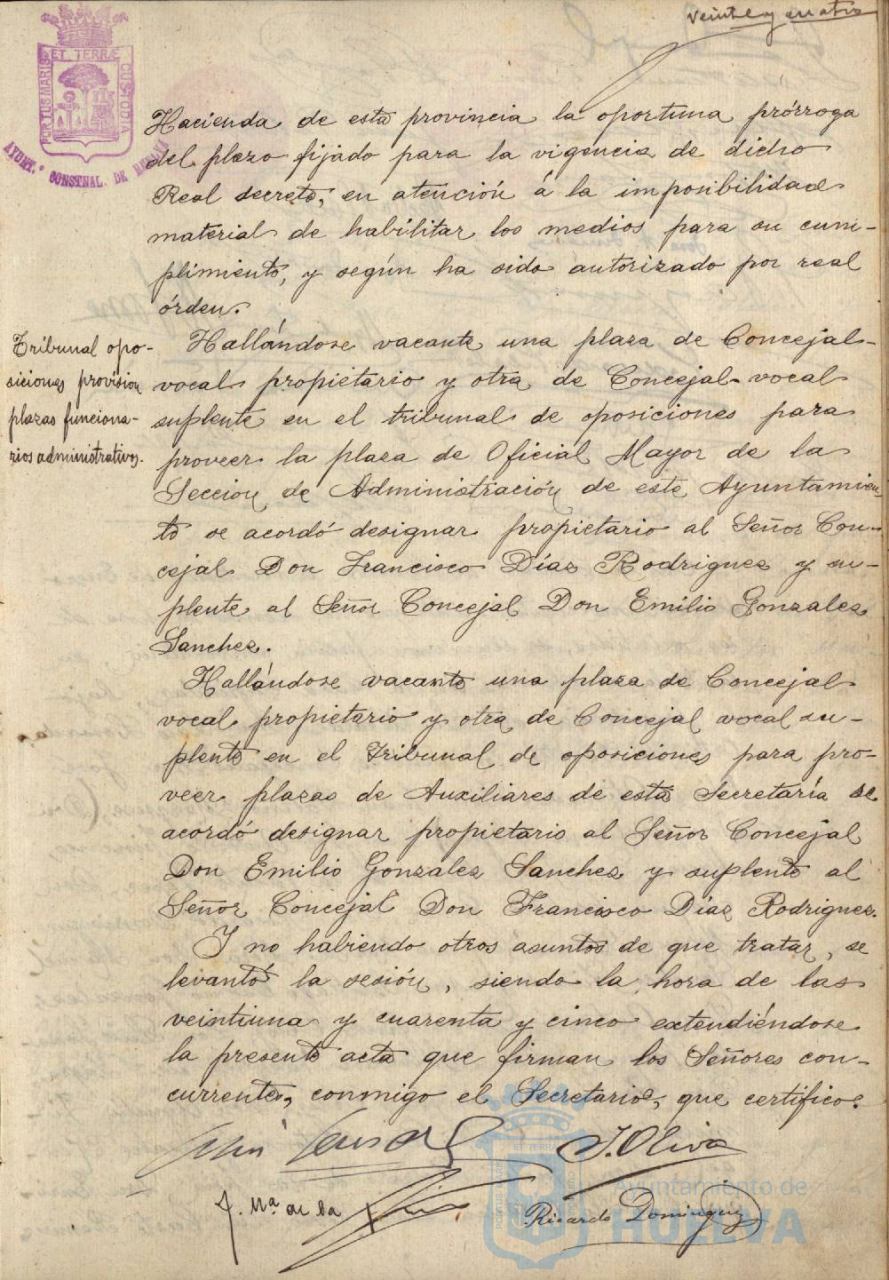 veinte y cuatro
PORTUS MARIS ET TERRÆ CUSTODIA
AYUNT.º CONSTNAL. DE HUELVA
Hacienda de esta provincia la oportuna prórroga
del plazo fijado para la vigencia de dicho
Real decreto, en atención á la imposibilidad
material de habilitar los medios para su cum-
plimiento, y según ha sido autorizado por real
órden.
Tribunal opo-
siciones provisión
plazas funciona-
rios administrativos.
Hallándose vacante una plaza de Concejal-
vocal propietario y otra de Concejal-vocal
suplente en el tribunal de oposiciones para
proveer la plaza de Oficial Mayor de la
Sección de Administración de este Ayuntamien-
to se acordó designar propietario al Señor Con-
cejal Don Francisco Díaz Rodriguez y su-
plente al Señor Concejal Don Emilio Gonzalez
Sanchez.
Hallándose vacante una plaza de Concejal
vocal propietario y otra de Concejal vocal su-
plente en el Tribunal de oposiciones para pro-
veer plazas de Auxiliares de esta Secretaría se
acordó designar propietario al Señor Concejal
Don Emilio Gonzalez Sanchez y suplente al
Señor Concejal Don Francisco Díaz Rodriguez.
Y no habiendo otros asuntos de que tratar, se
levantó la sesión, siendo la hora de las
veintiuna y cuarenta y cinco extendiéndose
la presente acta que firman los Señores con-
currentes, conmigo el Secretario, que certifico.
J. Oliva
J. Mª de la
Ricardo Dominguez
Ayuntamiento de
HUELVA